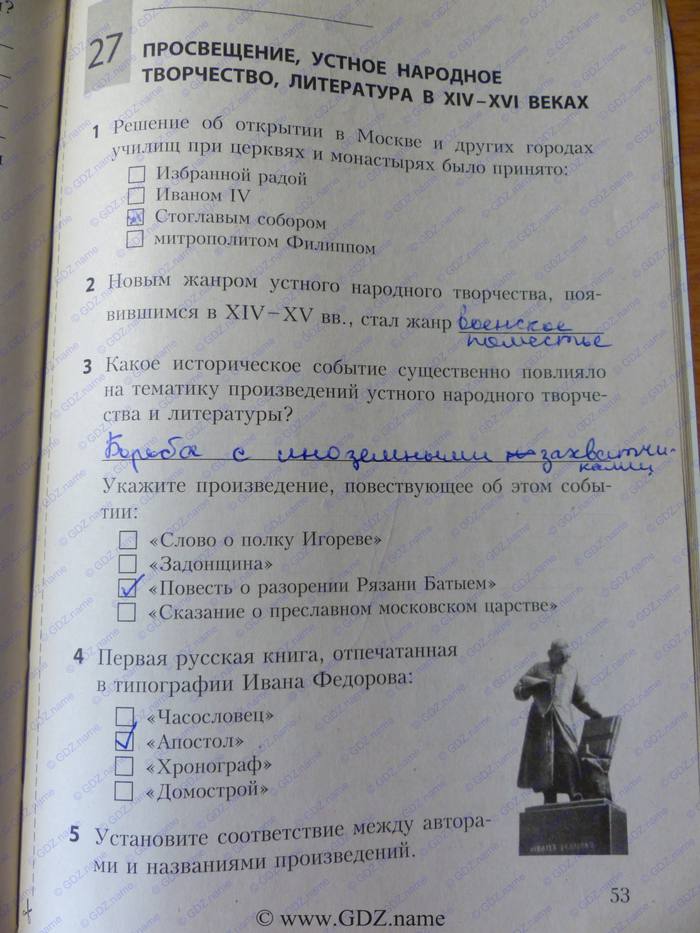 27
ПРОСВЕЩЕНИЕ, УСТНОЕ НАРОДНОЕ
ТВОРЧЕСТВО, ЛИТЕРАТУРА В XIV–XVI ВЕКАХ
1 Решение об открытии в Москве и других городах
училищ при церквях и монастырях было принято:
Избранной радой
Иваном IV
Стоглавым собором
митрополитом Филиппом
2 Новым жанром устного народного творчества, поя-
вившимся в XIV–XV вв., стал жанр военское
поместье
3 Какое историческое событие существенно повлияло
на тематику произведений устного народного творче-
ства и литературы?
Борьба с иноземными захватчи-
ками
Укажите произведение, повествующее об этом собы-
тии:
«Слово о полку Игореве»
«Задонщина»
«Повесть о разорении Рязани Батыем»
«Сказание о преславном московском царстве»
4 Первая русская книга, отпечатанная
в типографии Ивана Федорова:
«Часословец»
«Апостол»
«Хронограф»
«Домострой»
5 Установите соответствие между автора-
ми и названиями произведений.
53
© www.GDZ.name